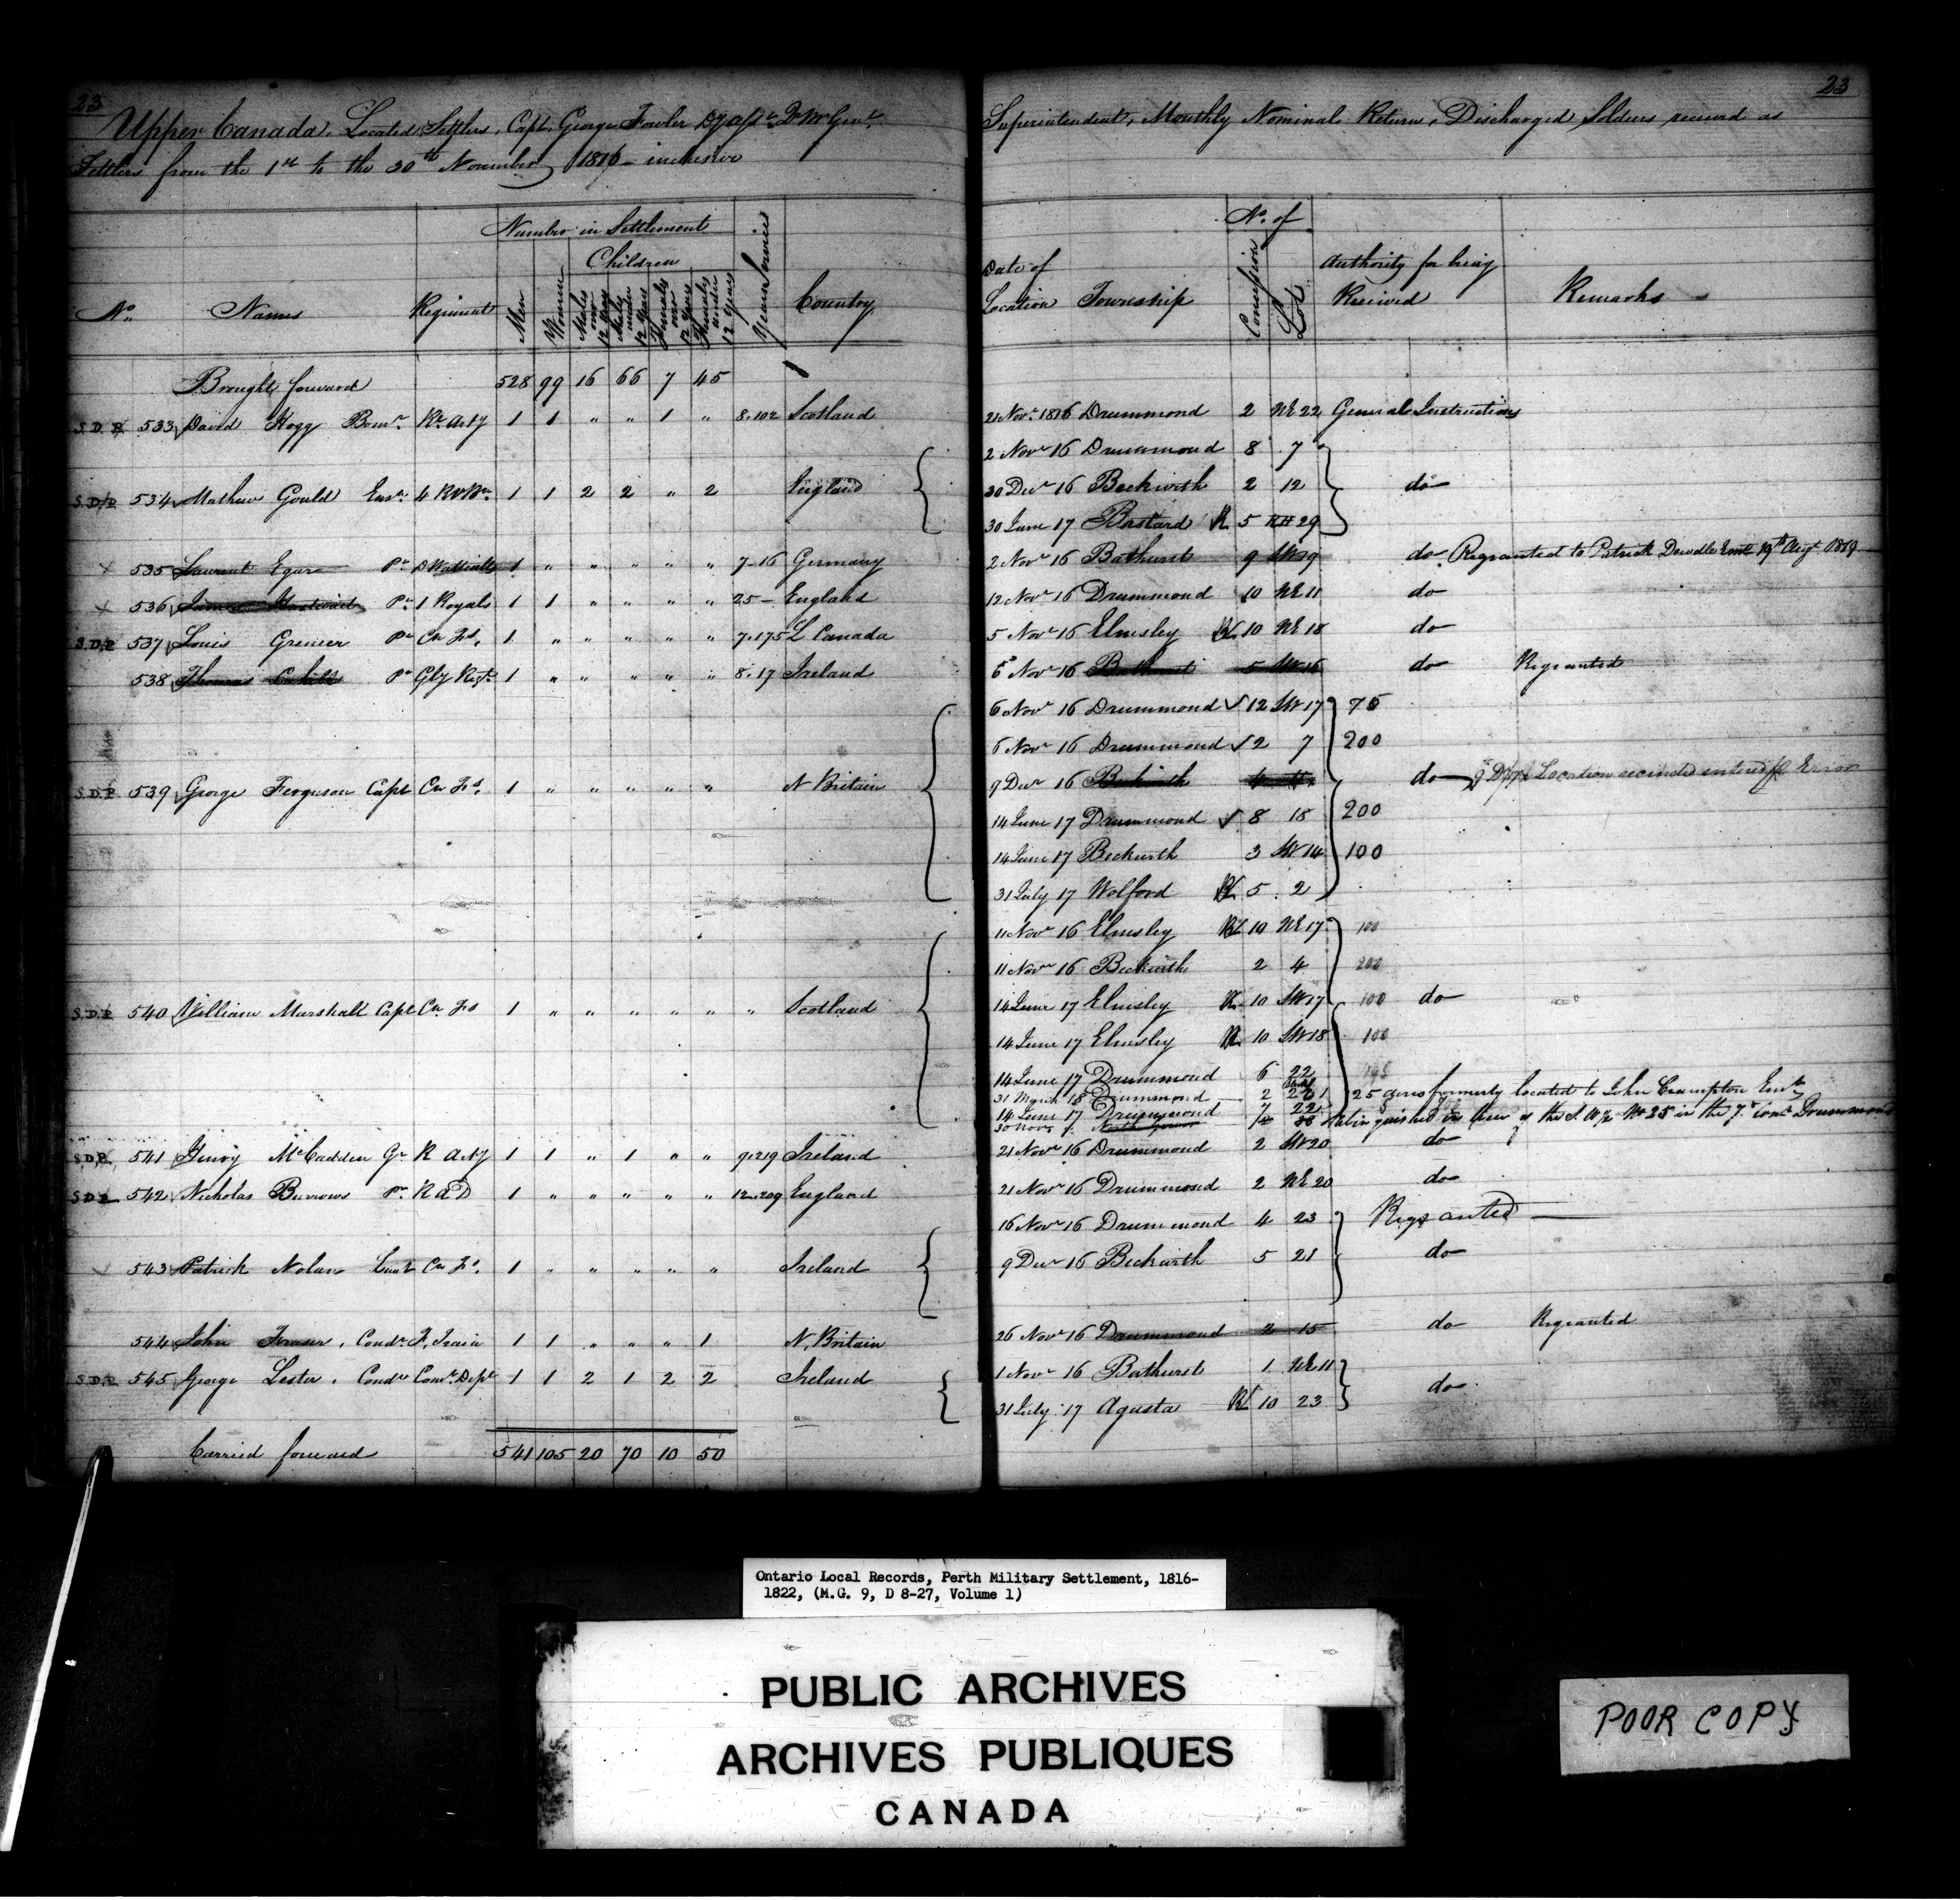 23
Upper Canada. Located Settlers, Capt. George Fowler Dy Asst. Qr Mr Genl.
Settlers from the 1st to the 20th November 1816 - inclusive
Number in Settlement
Children
No. Names Regiment Men Women Males over 12 Years Males under 12 Years Females over 12 Years Females under 12 Years Years Service Country
Brought forward 528 99 16 66 7 45
S.D.P 533 David Hogg Bomr. Rl. Arty 1 1 " " 1 " 8.102 Scotland
S.D.P 534 Mathew Gould Ensn. 4 RVBn 1 1 2 2 " 2 England
x 535 Laurent Pte DWattvills 1 " " " " " 7-16 Germany
x 536 James Pte 1 Royals 1 1 " " " " 25- England
S.D.P 537 Louis Grenier Pte Cn Fs. 1 " " " " " 7.175 L Canada
538 Thomas Cahill Pte Gly Regt. 1 " " " " " 8.17 Ireland
S.D.P 539 George Ferguson Capt Cn Fs. 1 " " " " " N Britain
S.D.P 540 William Marshall Capt Cn Fs 1 " " " " " " Scotland
S.D.P 541 Henry McCadden Gr R Arty 1 1 " 1 " " 9.219 Ireland
S.D.P 542 Nicholas Burrows Pr R a D 1 " " " " " 12.209 England
543 Patrick Nolan Lieut Cn Fs. 1 " " " " " Ireland
544 John Fraser, Condr. F. Train 1 1 " " " 1 N. Britain
S.D.P 545 George Lester, Condr Comt. Dept 1 1 2 1 2 2 Ireland
Carried forward 541 105 20 70 10 50
23
Superintendent, Monthly Nominal Return, Discharged Soldiers received as
No. of
Date of Location Township Concession Lot Authority for being Received Remarks
21 Novr. 1816 Drummond 2 NE 22 General Instructions
2 Novr 16 Drummond 8 7
30 Decr 16 Beckwith 2 12 do
30 June 17 Bastard R 5 29
2 Novr 16 Bathurst 9 SW 19 do. Regranted to Patrick Dowdle Emt 19th Augt 1819
12 Novr 16 Drummond 10 NE 11 do
5 Novr 16 Elmsley RL 10 NE 18 do
5 Novr 16 Bathurst 5 SW 16 do Regranted
6 Novr 16 Drummond ✓ 12 SW 17 75
6 Novr 16 Drummond ✓ 2 7 200
9 Decr 16 Beckwith do Location recinded entered in Error
14 June 17 Drummond ✓ 8 18 200
14 June 17 Beckwith 3 SW 14 100
31 July 17 Wolford RL 5 2
11 Novr 16 Elmsley RL 10 NE 17 100
11 Novr 16 Beckwith 2 4 200
14 June 17 Elmsley R 10 SW 17 100 do
14 June 17 Elmsley R 10 SW 18 100
14 June 17 Drummond 6 22
31 March 18 Drummond 2 25 acres formerly located to John Crampton Emt
14 June 17 Drummond 7 22
30 Novr Relinquished in lieu of the S.W ½ No 25 in the 7th Conn Drummond
21 Novr 16 Drummond 2 SW 20 do
21 Novr 16 Drummond 2 NE 20 do
16 Novr 16 Drummond 4 23 Regranted
9 Decr 16 Beckwith 5 21 do
26 Novr 16 Drummond 2 15 do Regranted
1 Novr 16 Bathurst 1 NE 11
31 July 17 Agusta RL 10 23 do
Ontario Local Records, Perth Military Settlement, 1816-
1822, (M.G. 9, D 8-27, Volume 1)
PUBLIC ARCHIVES
ARCHIVES PUBLIQUES
CANADA
POOR COPY